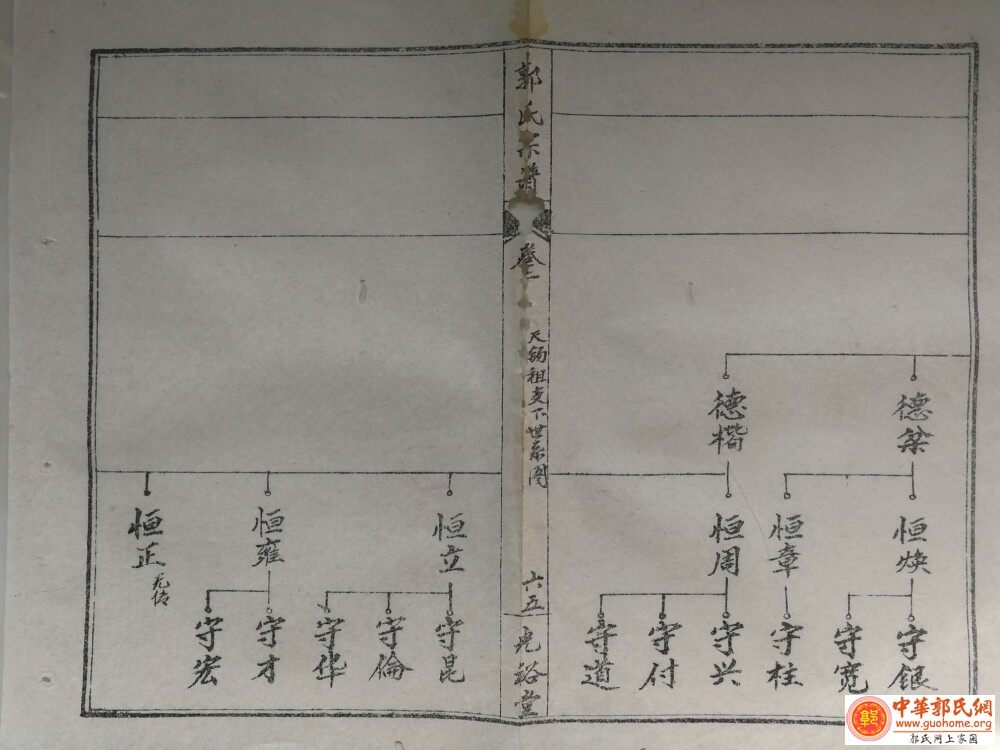 郭氏宗谱
卷二
天锡祖支下世系图
六五
光裕堂
德楷
恒周
恒章
恒焕
守道
守付
守兴
守柱
守宽
守银
恒正
无传
恒雍
恒立
守宏
守才
守华
守倫
守昆
中華郭氏網
www.guohome.org
郭氏网上家园